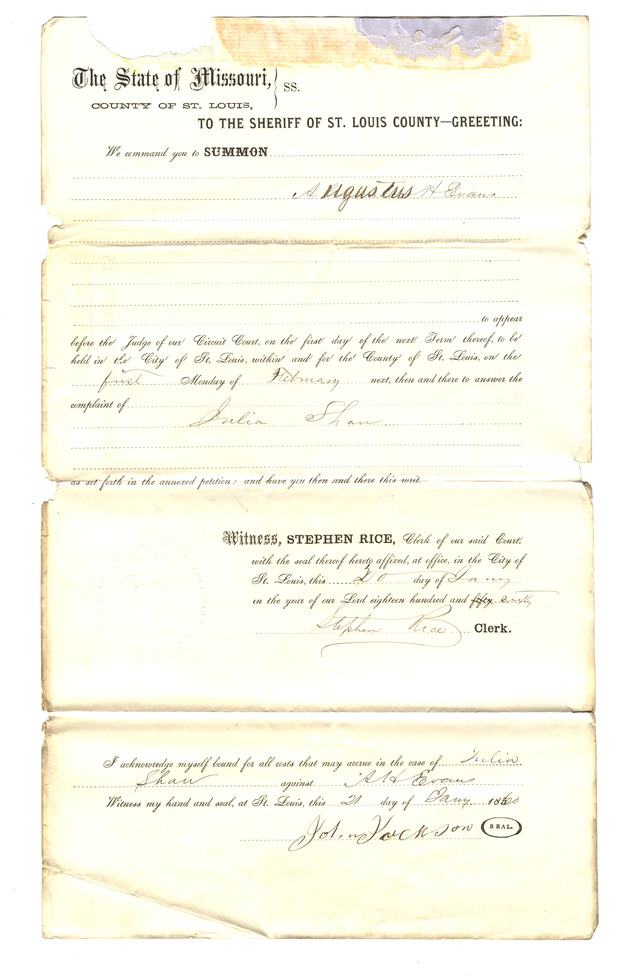 The State of Missouri, } SS.
COUNTY OF ST. LOUIS,
TO THE SHERIFF OF ST. LOUIS COUNTY—GREEETING:
We command you to SUMMON
Augustus H Evans
to appear
before the Judge of our Circuit Court, on the first day of the next Term thereof, to be
held in the City of St. Louis, within and for the County of St. Louis, on the
first Monday of February next, then and there to answer the
complaint of
Julia Shaw
as set forth in the annexed petition: and have you then and there this writ.
Witness, STEPHEN RICE, Clerk of our said Court,
with the seal thereof hereto affixed, at office, in the City of
St. Louis, this 20 day of Jany
in the year of our Lord eighteen hundred and fifty sixty
Stephen Rice Clerk.
I acknowledge myself bound for all costs that may accrue in the case of Julia
Shaw against A H Evans
Witness my hand and seal, at St. Louis, this 20 day of Jany 1860
John Jackson SEAL.